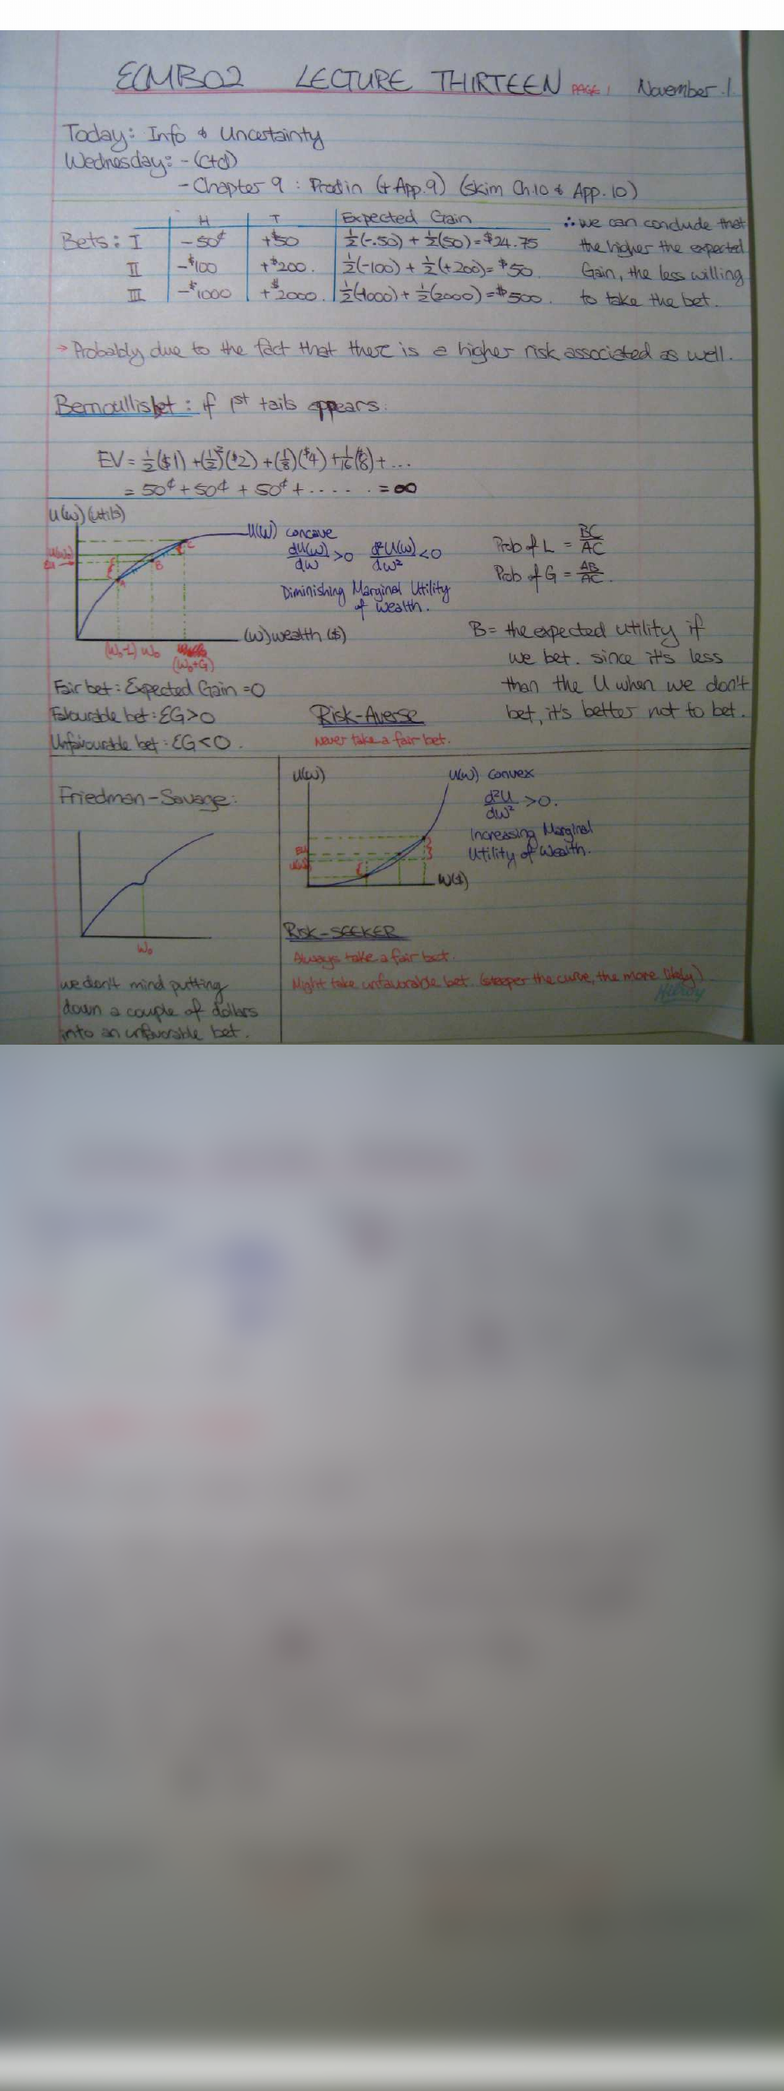 ECMB02 LECTURE THIRTEEN PAGE 1 November 1
Today: Info & Uncertainty
Wednesday: - (Ctd)
- Chapter 9 : Prod'n (+ App. 9) (skim Ch.10 & App. 10)
H T Expected Gain
Bets: I -50¢ +$50 ½(-.50) + ½(50) = $24.75
II -$100 +$200. ½(-100) + ½(+200) = $50.
III -$1000 +$2000. ½(-1000) + ½(2000) = $500.
∴ we can conclude that
the higher the expected
Gain, the less willing
to take the bet.
→ Probably due to the fact that there is a higher risk associated as well.
Bernoulli's bet : if 1st tails appears:
EV = ½($1) + (½)²($2) + (⅛)($4) + 1/16($8) + ...
= 50¢ + 50¢ + 50¢ + ...... = ∞
U(w) (utils)
U(w) concave
dU(w)/dw > 0 d²U(w)/dw² < 0
Diminishing Marginal Utility
of Wealth.
A B C
(w) wealth ($)
(W₀-L) W₀
(W₀+G)
Prob of L = BC/AC
Prob of G = AB/AC.
B = the expected utility if
we bet. since it's less
than the U when we don't
bet, it's better not to bet.
Fair bet : Expected Gain = 0
Favourable bet : EG > 0
Unfavourable bet : EG < 0.
Risk-Averse
Never take a fair bet.
Friedman-Savage:
W₀
we don't mind putting
down a couple of dollars
into an unfavorable bet.
U(w)
U(w) convex
d²U/dw² > 0.
Increasing Marginal
Utility of Wealth.
W($)
RISK-SEEKER
Always take a fair bet.
Might take unfavorable bet. (steeper the curve, the more likely)